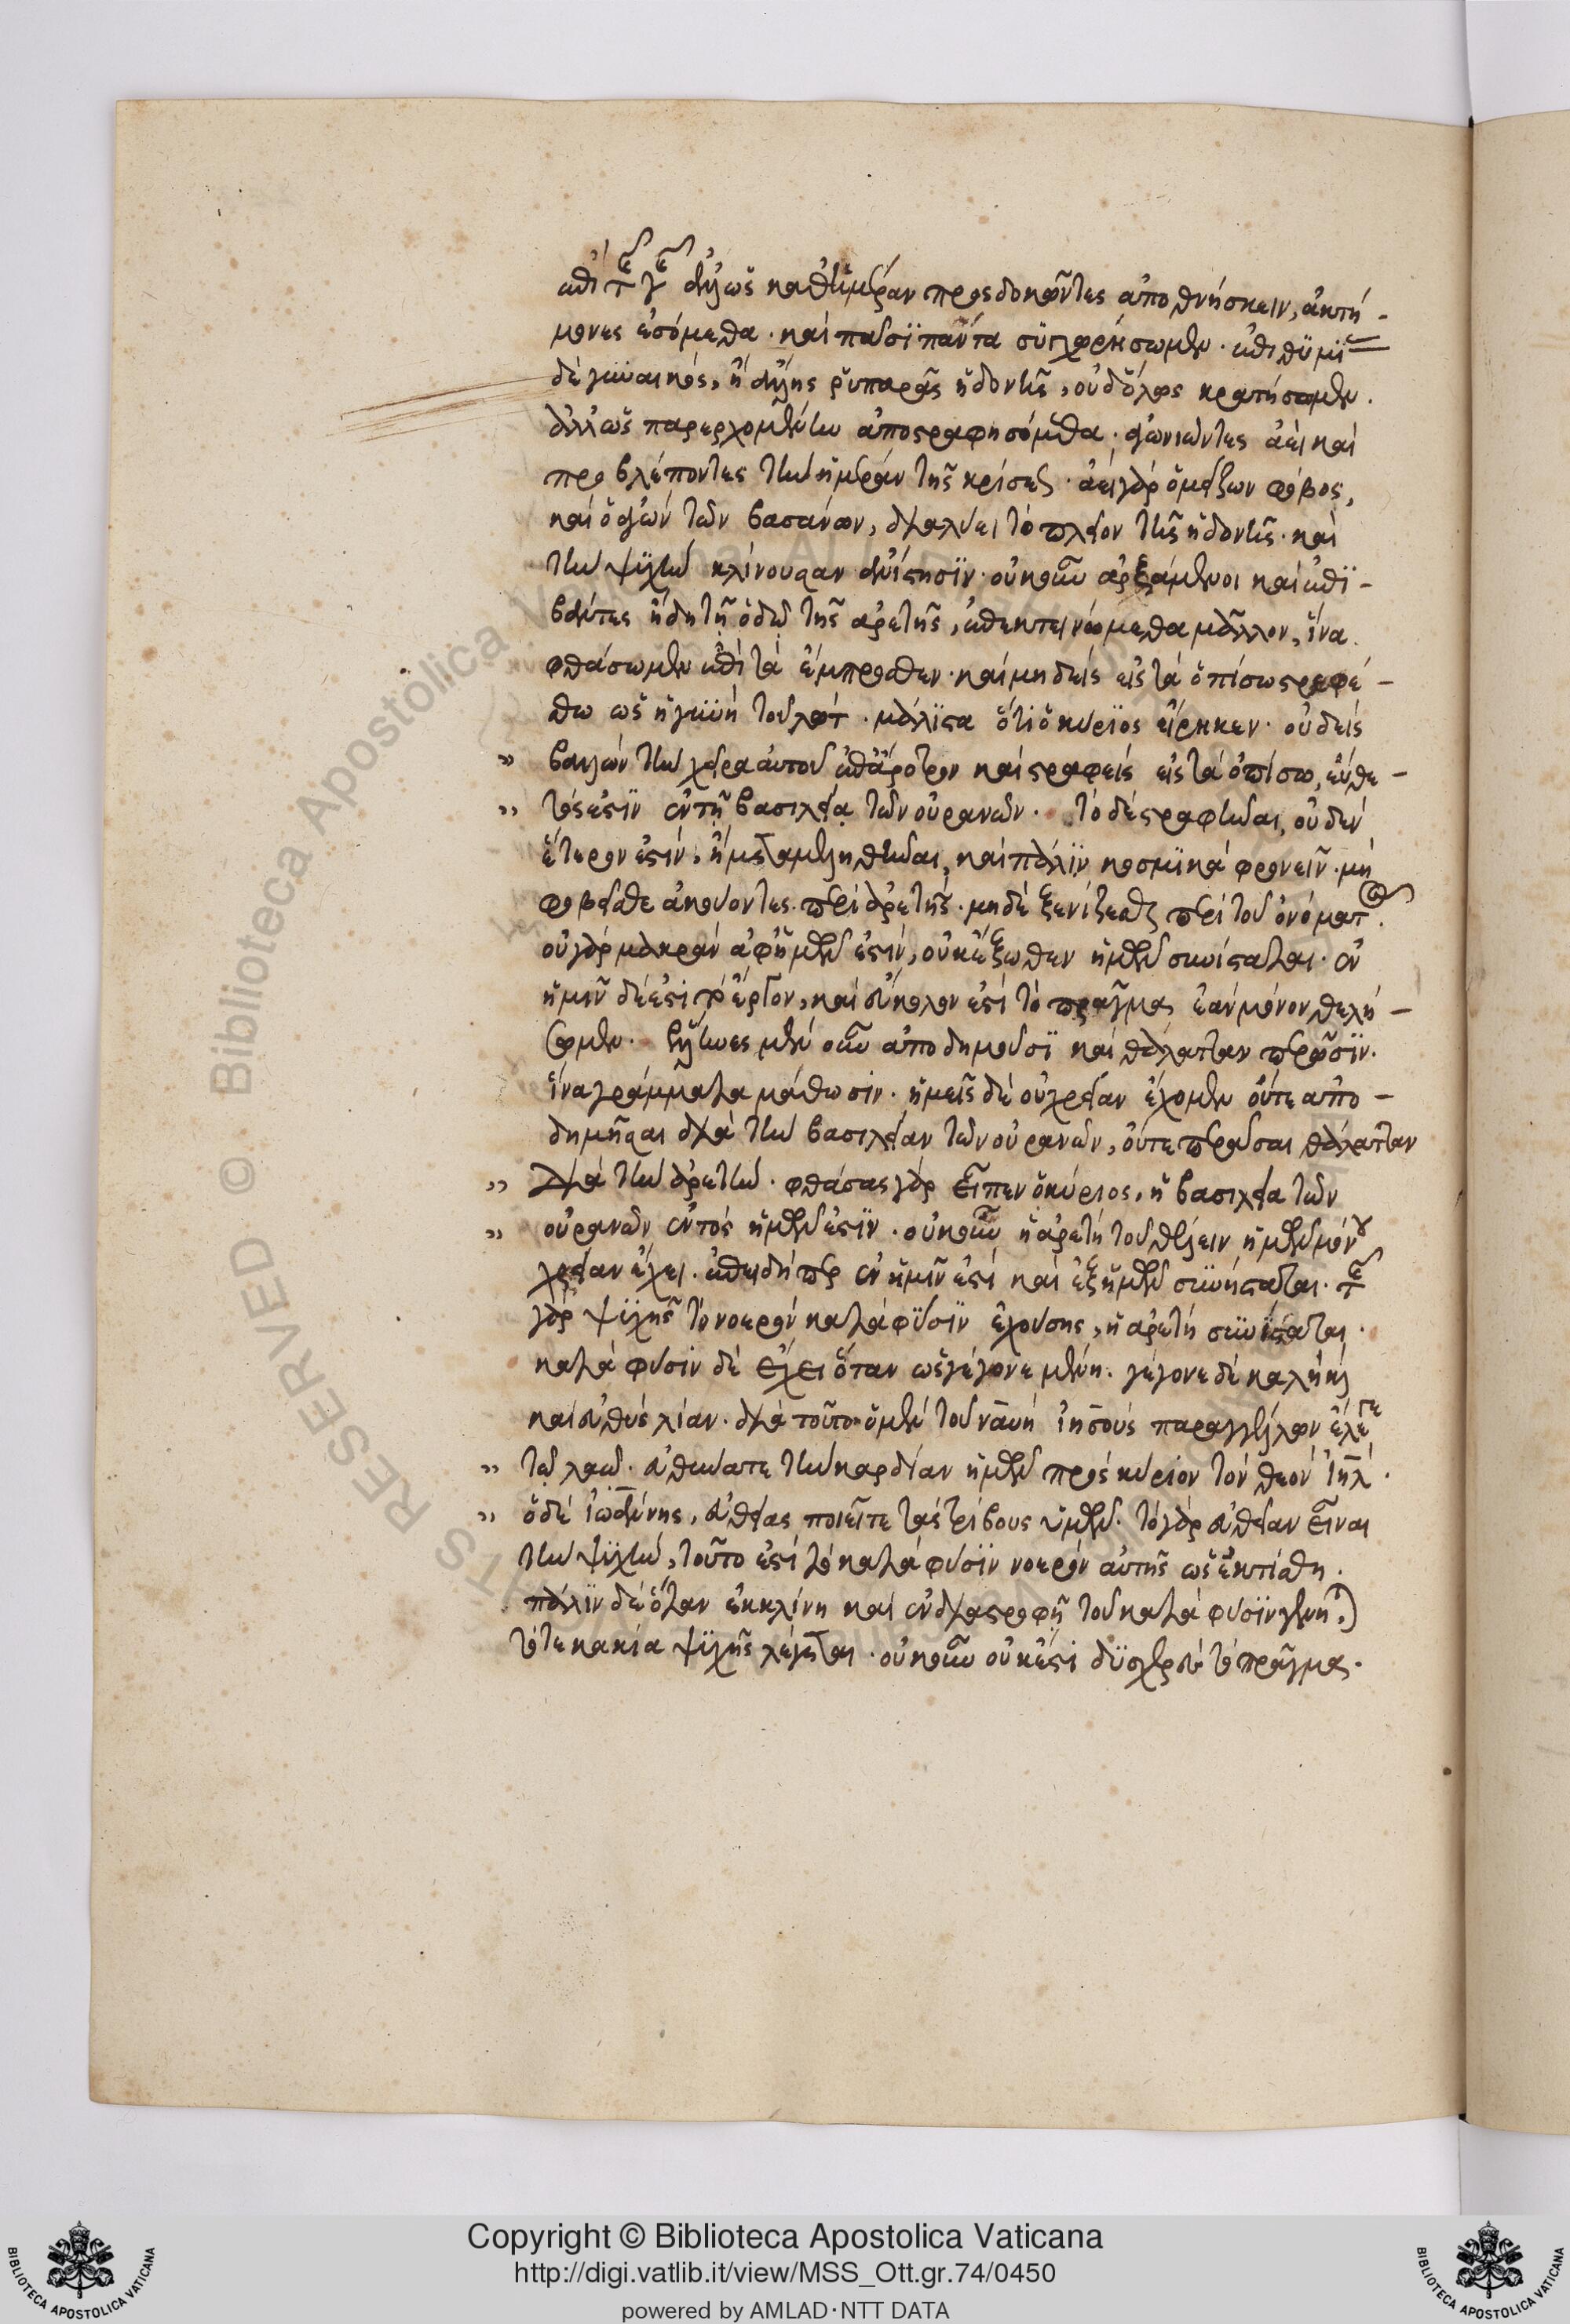 ἐπὶ τῆς γῆς. ἀλλ' ὡς καθ' ἡμέραν προσδοκῶντες ἀποθνήσκειν, ἀκτή-
μονες ἐσόμεθα. καὶ πᾶσϊ πάντα συγχωρήσωμεν. ἐπιθυμί
δὲ γυναικὸς, ἢ ἄλλης ῥυπαρᾶς ἡδονῆς, οὐδ' ὅλως κρατήσωμεν.
ἀλλ' ὡς παρερχομένην ἀποστραφησόμεθα. ἀγωνιῶντες ἀεὶ καὶ
προβλέποντες τὴν ἡμέραν τῆς κρίσεως. ἀεὶ γὰρ ὁ μείζων φόβος,
καὶ ὁ ἀγὼν τῶν βασάνων, διαλύει τὸ λεῖον τῆς ἡδονῆς. καὶ
τὴν ψυχὴν κλίνουσαν ἀνίστησϊν. οὐκοῦν ἀρξάμενοι καὶ ἐπϊ-
βάντες ἤδη τῇ ὁδῷ τῆς ἀρετῆς, ἐπεκτεινώμεθα μᾶλλον, ἵνα
φθάσωμεν ἐπὶ τὰ ἔμπροσθεν. καὶ μηδεὶς εἰς τὰ ὀπίσω στρεφέ-
σθω ὡς ἡ γυνὴ τοῦ λώτ. μάλϊστα ὅτι ὁ κύρϊος εἴρηκεν. οὐδεὶς
" βαλὼν τὴν χεῖρα αὐτοῦ ἐπ' ἄροτρον καὶ στραφεὶς εἰς τὰ ὀπίσω, εὔθε-
" τός ἐστϊν ἐν τῇ βασιλείᾳ τῶν οὐρανῶν. τὸ δὲ στραφῆναι, οὐδὲν
ἕτερον ἐστὶν, ἢ μεταμεληθῆναι, καὶ πάλϊν κοσμϊκὰ φρονεῖν. μὴ
φοβεῖσθε ἀκούοντες περὶ ἀρετῆς. μηδὲ ξενίζεσθε περὶ τοῦ ὀνόματος.
οὐ γὰρ μακρὰν ἀφ' ἡμῶν ἐστὶν, οὐκ ἔξωθεν ἡμῶν συνίσταται. ἐν
ἡμῖν δὲ ἐστὶ τὸ ἔργον, καὶ εὔκολον ἐστὶ τὸ πρᾶγμα, ἐὰν μόνον θελή-
σωμεν. ἕλληνες μὲν οὖν ἀποδημοῦσϊ καὶ θάλατταν περῶσϊν.
ἵνα γράμματα μάθωσϊν. ἡμεῖς δὲ οὐ χρείαν ἔχομεν οὔτε ἀπο-
δημῆσαι διὰ τὴν βασιλείαν τῶν οὐρανῶν, οὔτε περᾶσαι θάλατταν
" διὰ τὴν ἀρετήν. φθάσας γὰρ εἶπεν ὁ κύριος, ἡ βασιλεία τῶν
" οὐρανῶν ἐντὸς ἡμῶν ἐστϊν. οὐκοῦν ἡ ἀρετὴ τοῦ θέλειν ἡμῶν μόνου
χρείαν ἔχει. ἐπειδήπερ ἐν ἡμῖν ἐστὶ καὶ ἐξ ἡμῶν συνήσταται. τῆς
γὰρ ψυχῆς τὸ νοερὸν κατὰ φύσϊν ἐχούσης, ἡ ἀρετὴ συνίσταται.
κατὰ φύσϊν δὲ ἔχει ὅταν ὡς γέγονε μένῃ. γέγονε δὲ καλὴ καὶ
καὶ εὐθὺς λίαν. διὰ τοῦτο ὁ μὲν τοῦ ναυῆ ἰησοῦς παραγγέλλων ἔλεγε
" τῷ λαῷ. εὐθύνατε τὴν καρδίαν ἡμῶν πρὸς κύριον τὸν θεὸν ἰηλ.
" ὁ δὲ ἰωάννης, εὐθείας ποιεῖτε τὰς τρίβους ὑμῶν. τὸ γὰρ εὐθεῖαν εἶναι
τὴν ψυχὴν, τοῦτο ἐστὶ τὸ κατὰ φύσϊν νοερὸν αὐτῆς ὡς ἐκτίσθη.
πάλϊν δὲ ὅταν ἐκκλίνῃ καὶ ἐν διαστροφῇ τοῦ κατὰ φύσϊν γένηται,
τότε κακία ψυχῆς λέγεται. οὐκοῦν οὐκ ἔστι δυσχερὲς τὸ πρᾶγμα.
Copyright © Biblioteca Apostolica Vaticana
http://digi.vatlib.it/view/MSS_Ott.gr.74/0450
powered by AMLAD·NTT DATA